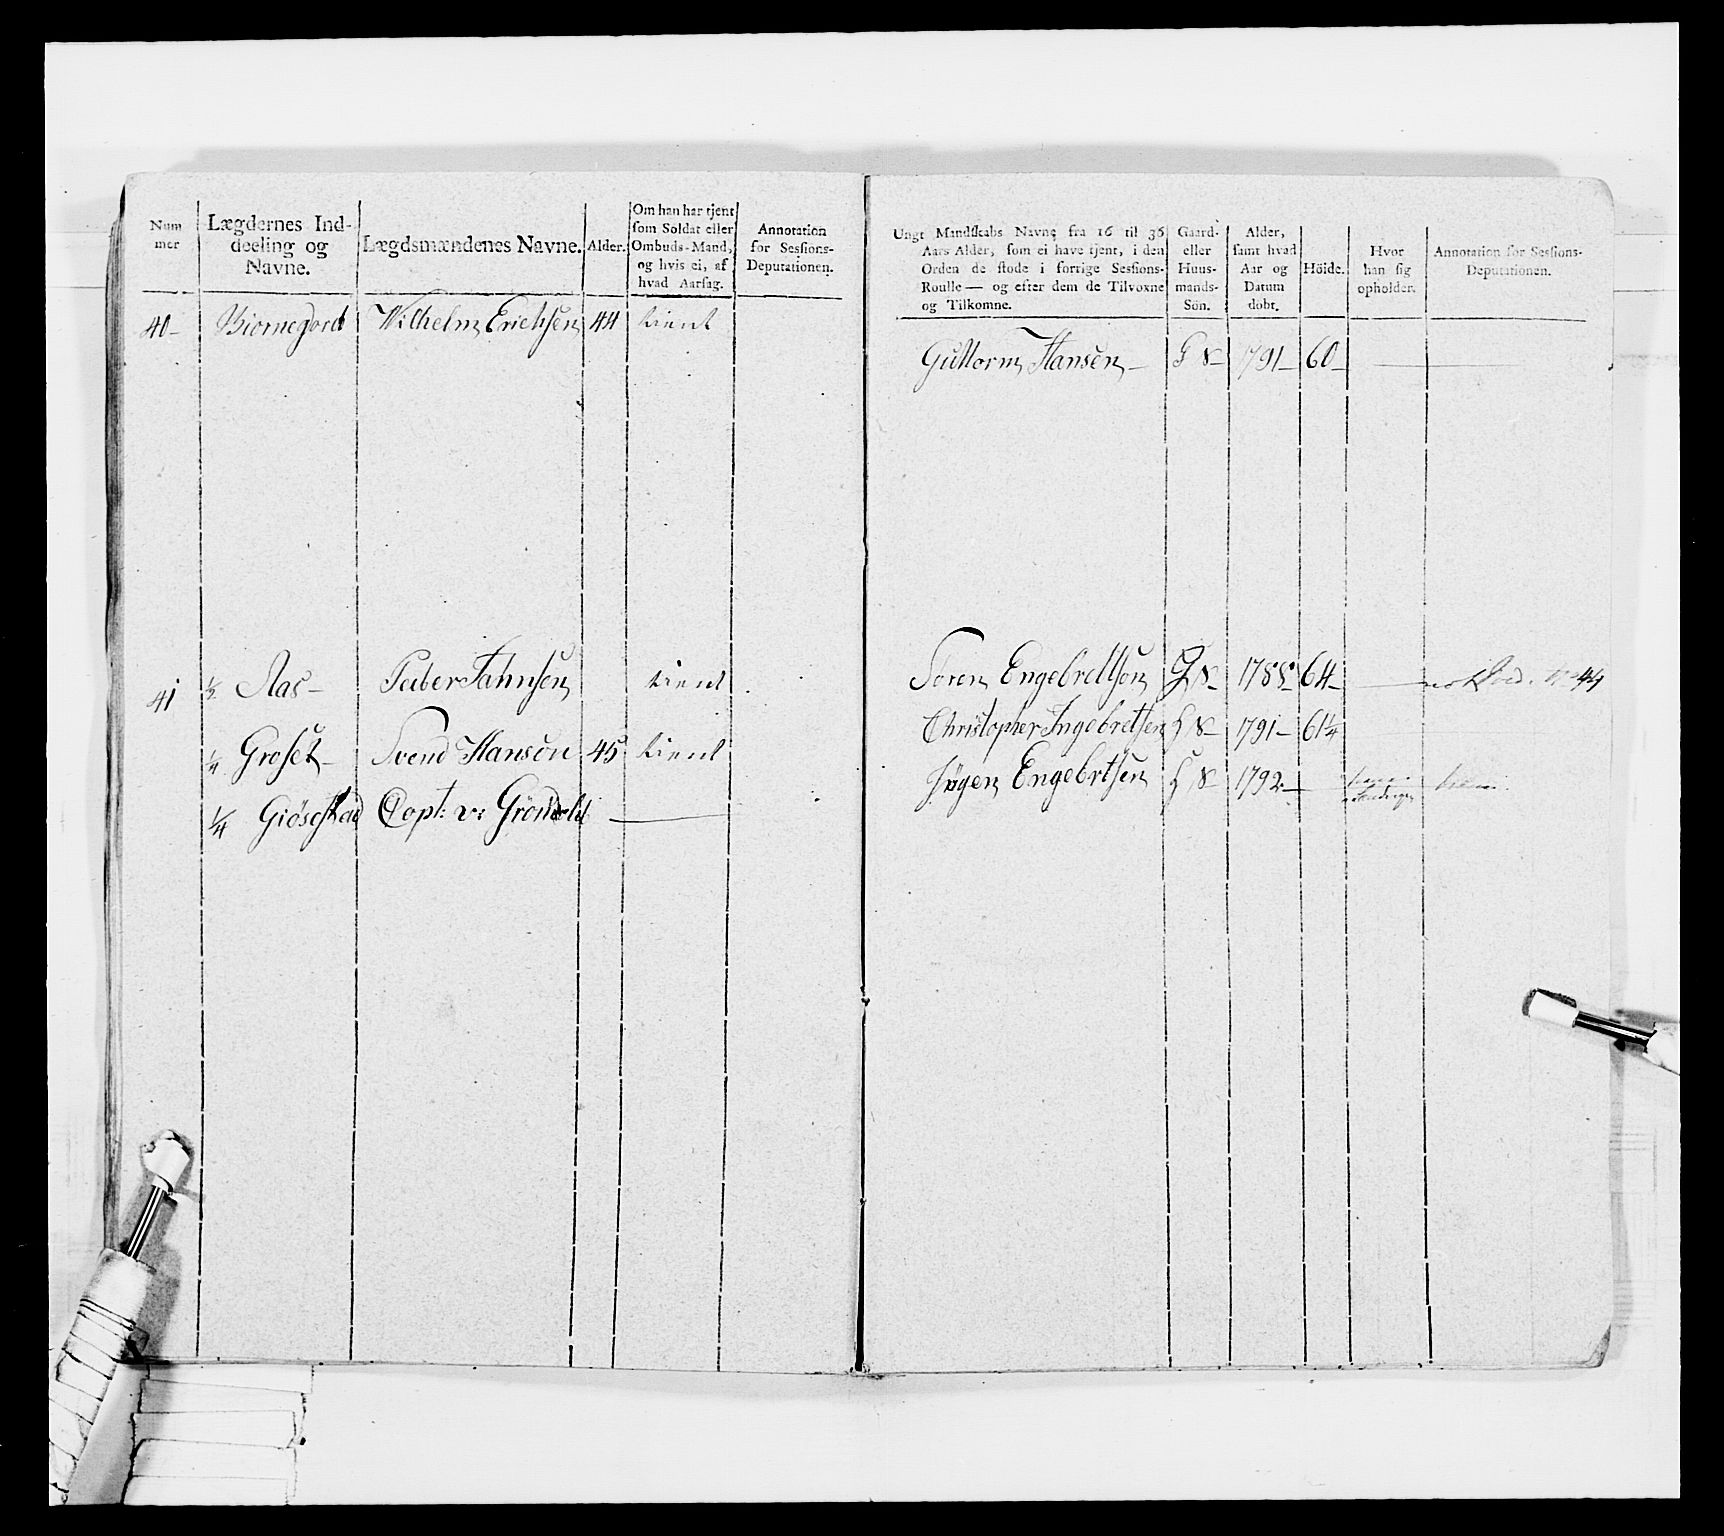 Num
mer
Lægdernes Ind-
deeling og
Navne.
Lægdsmændenes Navne.
Alder.
Om han har tjent
som Soldat eller
Ombuds-Mand,
og hvis ei, af
hvad Aarsag.
Annotation
for Sessions-
Deputationen.
40- Biornegord Wilhelm Erichsen 44 tient
41 ½ Aas- Peder Jahnsen tient
¼ Groset- Svend Hansøn 45 tient
¼ Giösestad Capt: v: Gröndvold —
Ungt Mandskabs Navne fra 16 til 36
Aars Alder, som ei have tjent, i den
Orden de stode i forrige Sessions-
Roulle — og efter dem de Tilvoxne
og Tilkomne.
Gaard-
eller
Huus-
mands-
Sön.
Alder,
samt hvad
Aar og
Datum
dobt.
Höide.
Hvor
han sig
opholder.
Annotation for Sessions-
Deputationen.
Guttorm Hansen- G S- 1791- 60-
Søren Engebrettsøn G S- 1788- 64- 44
Christopher Ingebretsen H S- 1791- 61¼
Jøgen Engebrtsen H S- 1792-